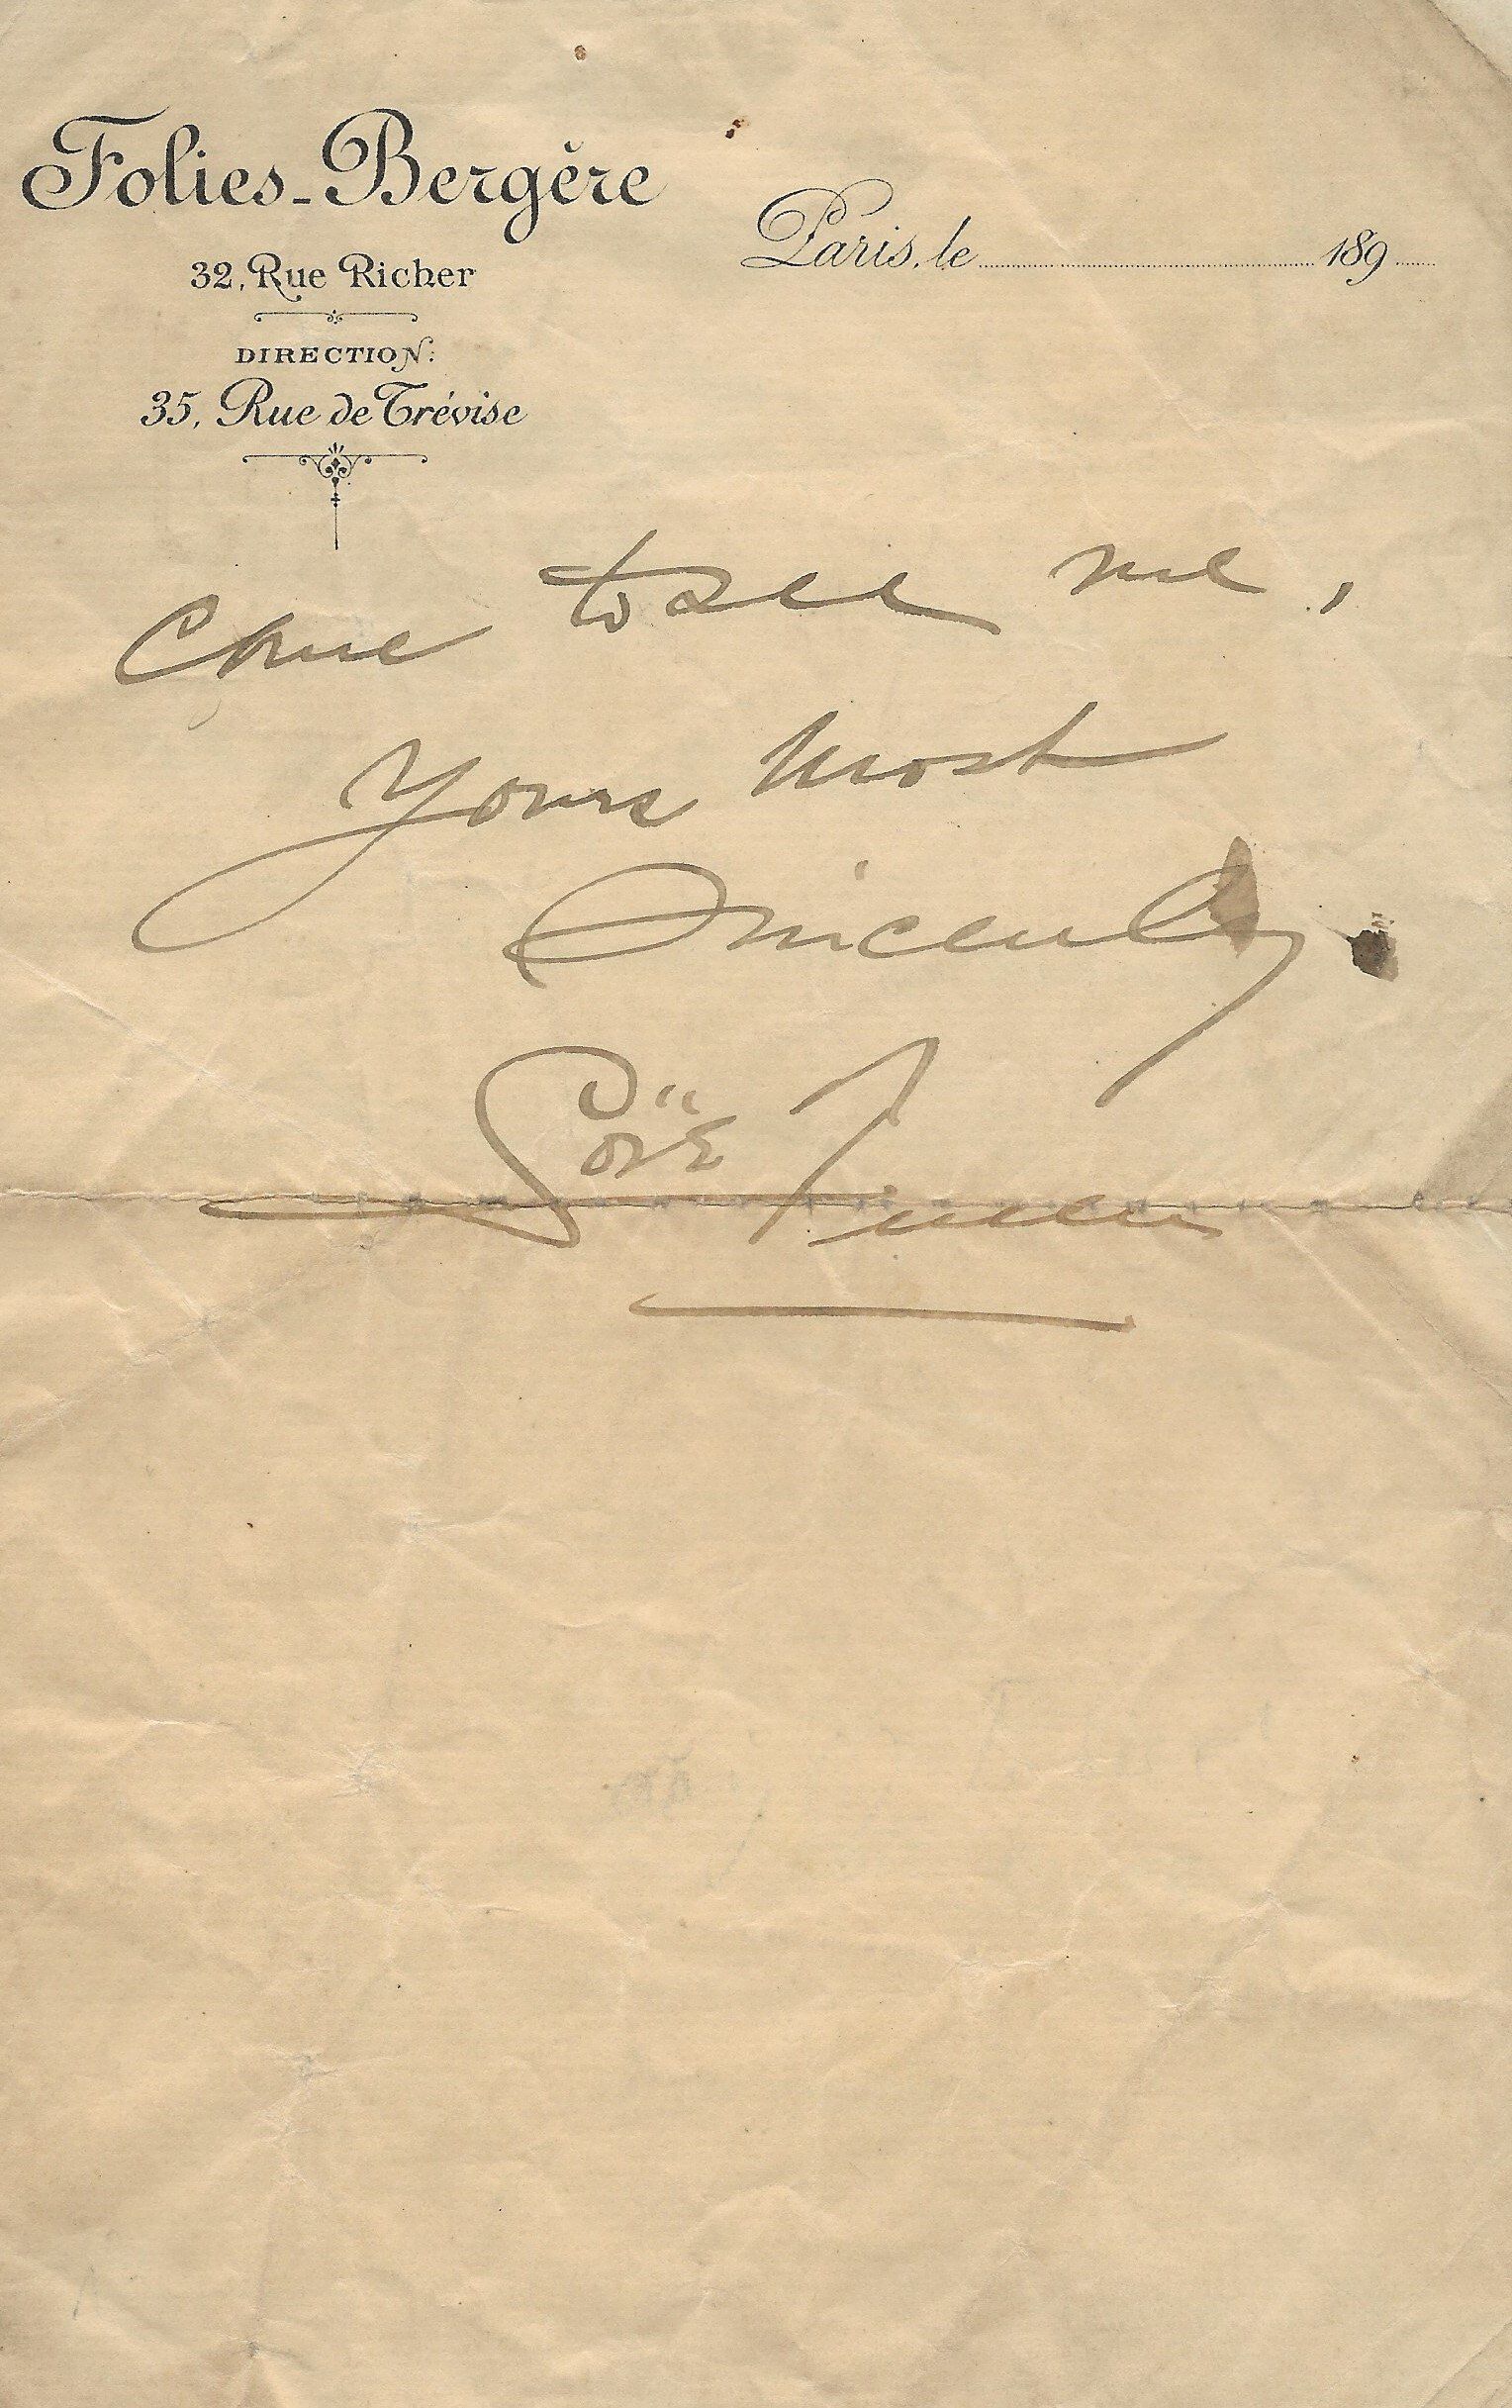 Folies-Bergère
32, Rue Richer
DIRECTION:
35, Rue de Trévise
Paris, le 189
Come to see me,
Yours most
Sincerely
Loïe Fuller